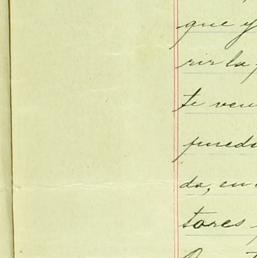 que y
rir la
te ven
pued
do, en
tores